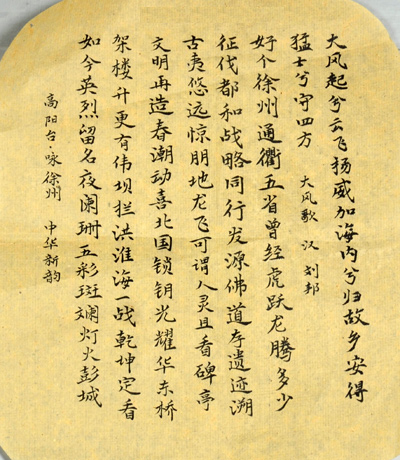 大风起兮云飞扬威加海内兮归故乡安得
猛士兮守四方 大风歌 汉 刘邦
好个徐州通衢五省曾经虎跃龙腾多少
征伐都和战略同行发源佛道存遗迹溯
古夷悠远惊朋地龙飞可谓人灵且看碑亭
文明再造春潮动喜北国锁钥光耀华东桥
架楼升更有伟坝拦洪淮海一战乾坤定看
如今英烈留名夜阑珊五彩斑斓灯火彭城
高阳台·咏徐州 中华新韵